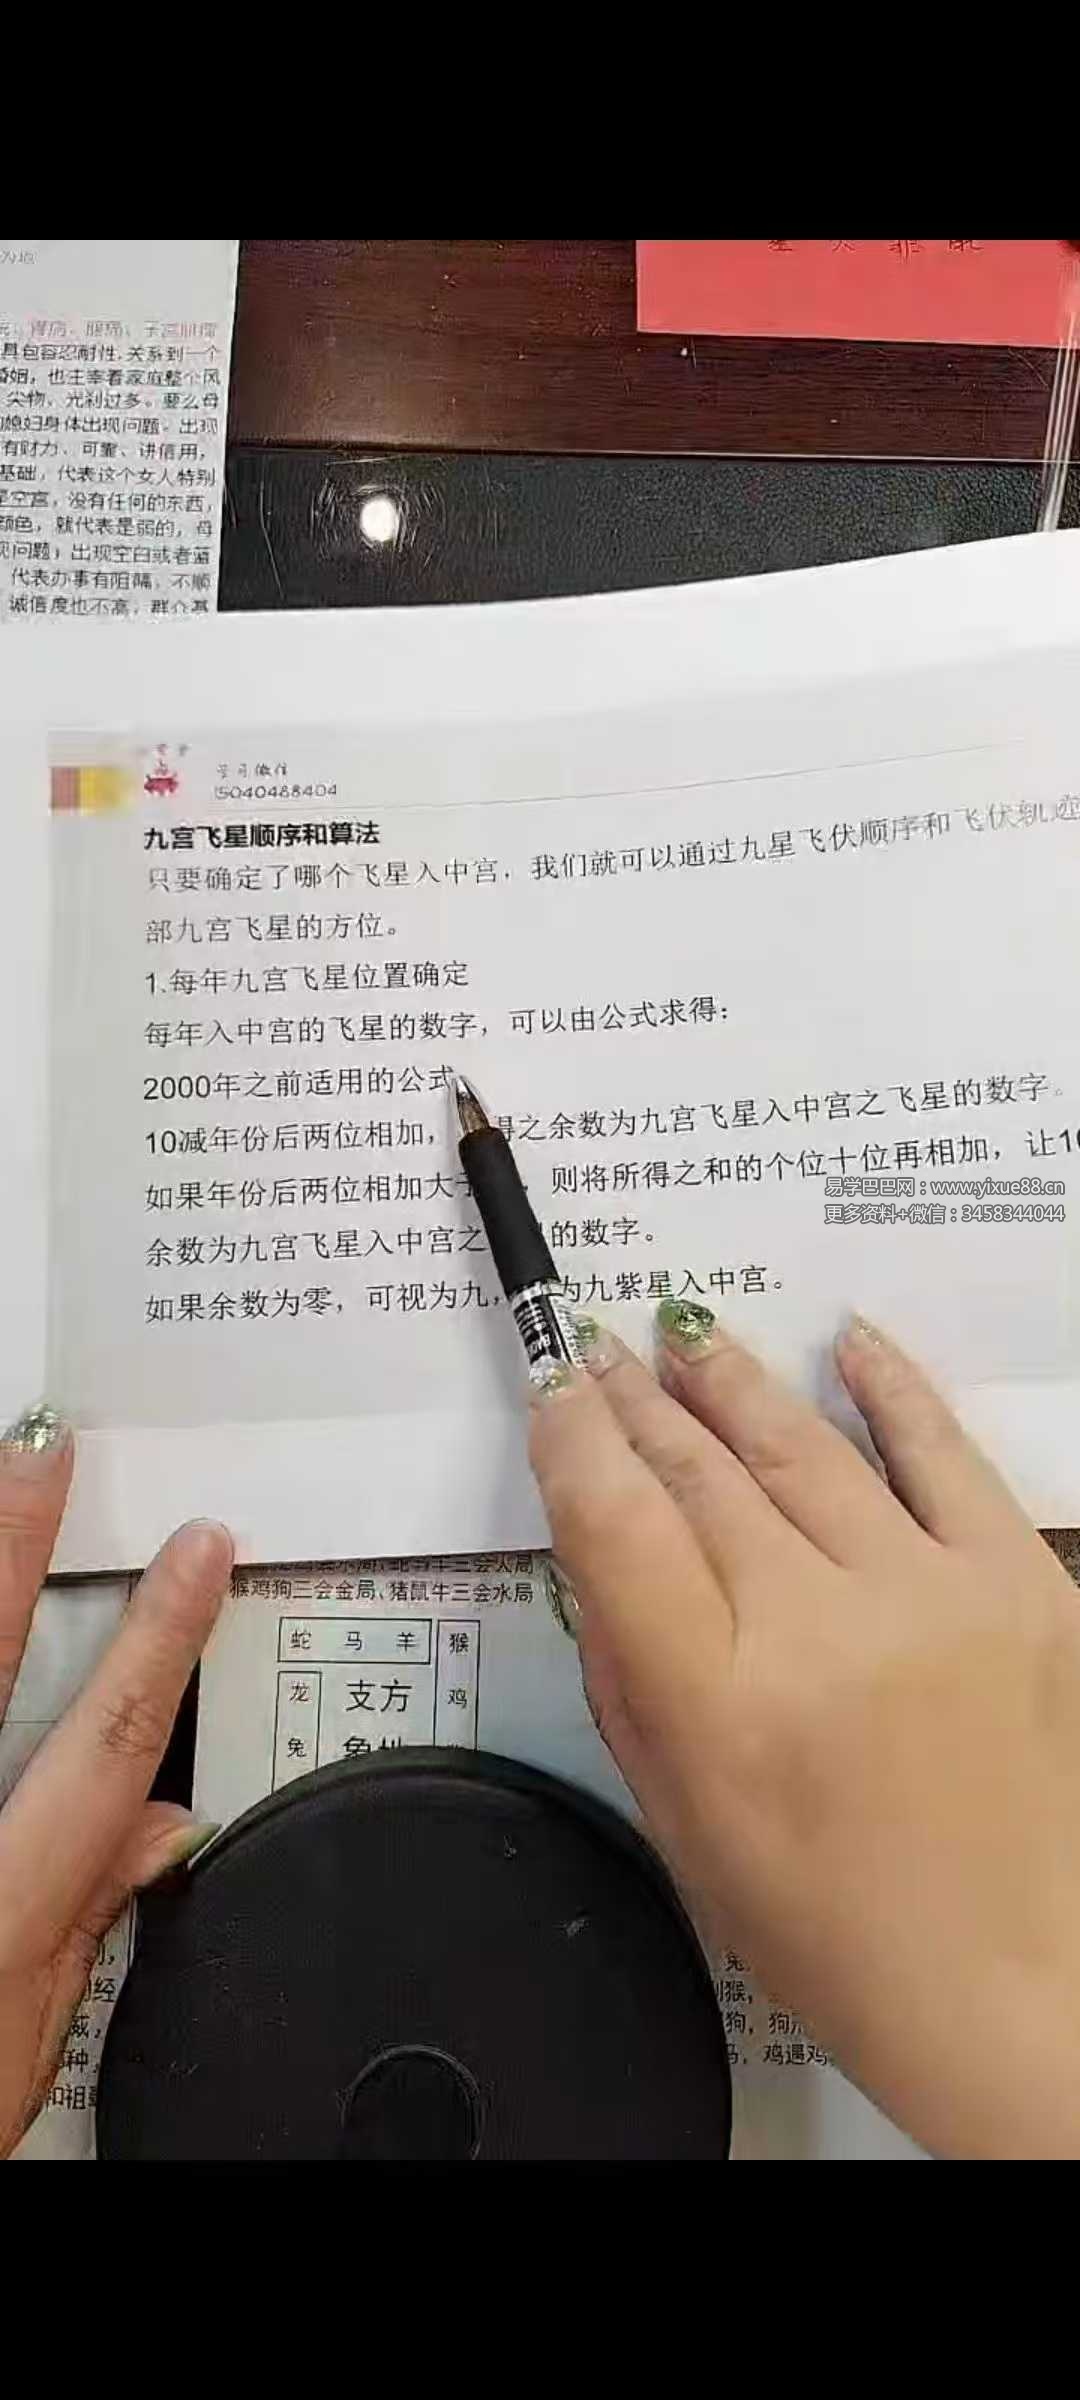 具包容忍耐性,关系到一个
婚姻，也主宰着家庭整个风
尖物、光刹过多。要么母
媳妇身体出现问题。出现
有财力、可靠、讲信用，
基础，代表这个女人特别
是空宫，没有任何的东西，
颜色，就代表是弱的，母
现问题；出现空白或者蓝
代表办事有阻隔，不顺
诚信度也不高，群众基
学习微信
15040488404
九宫飞星顺序和算法
只要确定了哪个飞星入中宫，我们就可以通过九星飞伏顺序和飞伏轨迹
部九宫飞星的方位。
1.每年九宫飞星位置确定
每年入中宫的飞星的数字，可以由公式求得：
2000年之前适用的公式
10减年份后两位相加，得之余数为九宫飞星入中宫之飞星的数字。
如果年份后两位相加大于 则将所得之和的个位十位再相加，让10
易学巴巴网：www.yixue88.cn
更多资料+微信：3458344044
余数为九宫飞星入中宫之 的数字。
如果余数为零，可视为九， 为九紫星入中宫。
猴鸡狗三会金局、猪鼠牛三会水局
蛇 马 羊 猴
龙 支方 鸡
兔
兔
猴，
狗，狗
马，鸡遇鸡
经
威，
种，
和祖